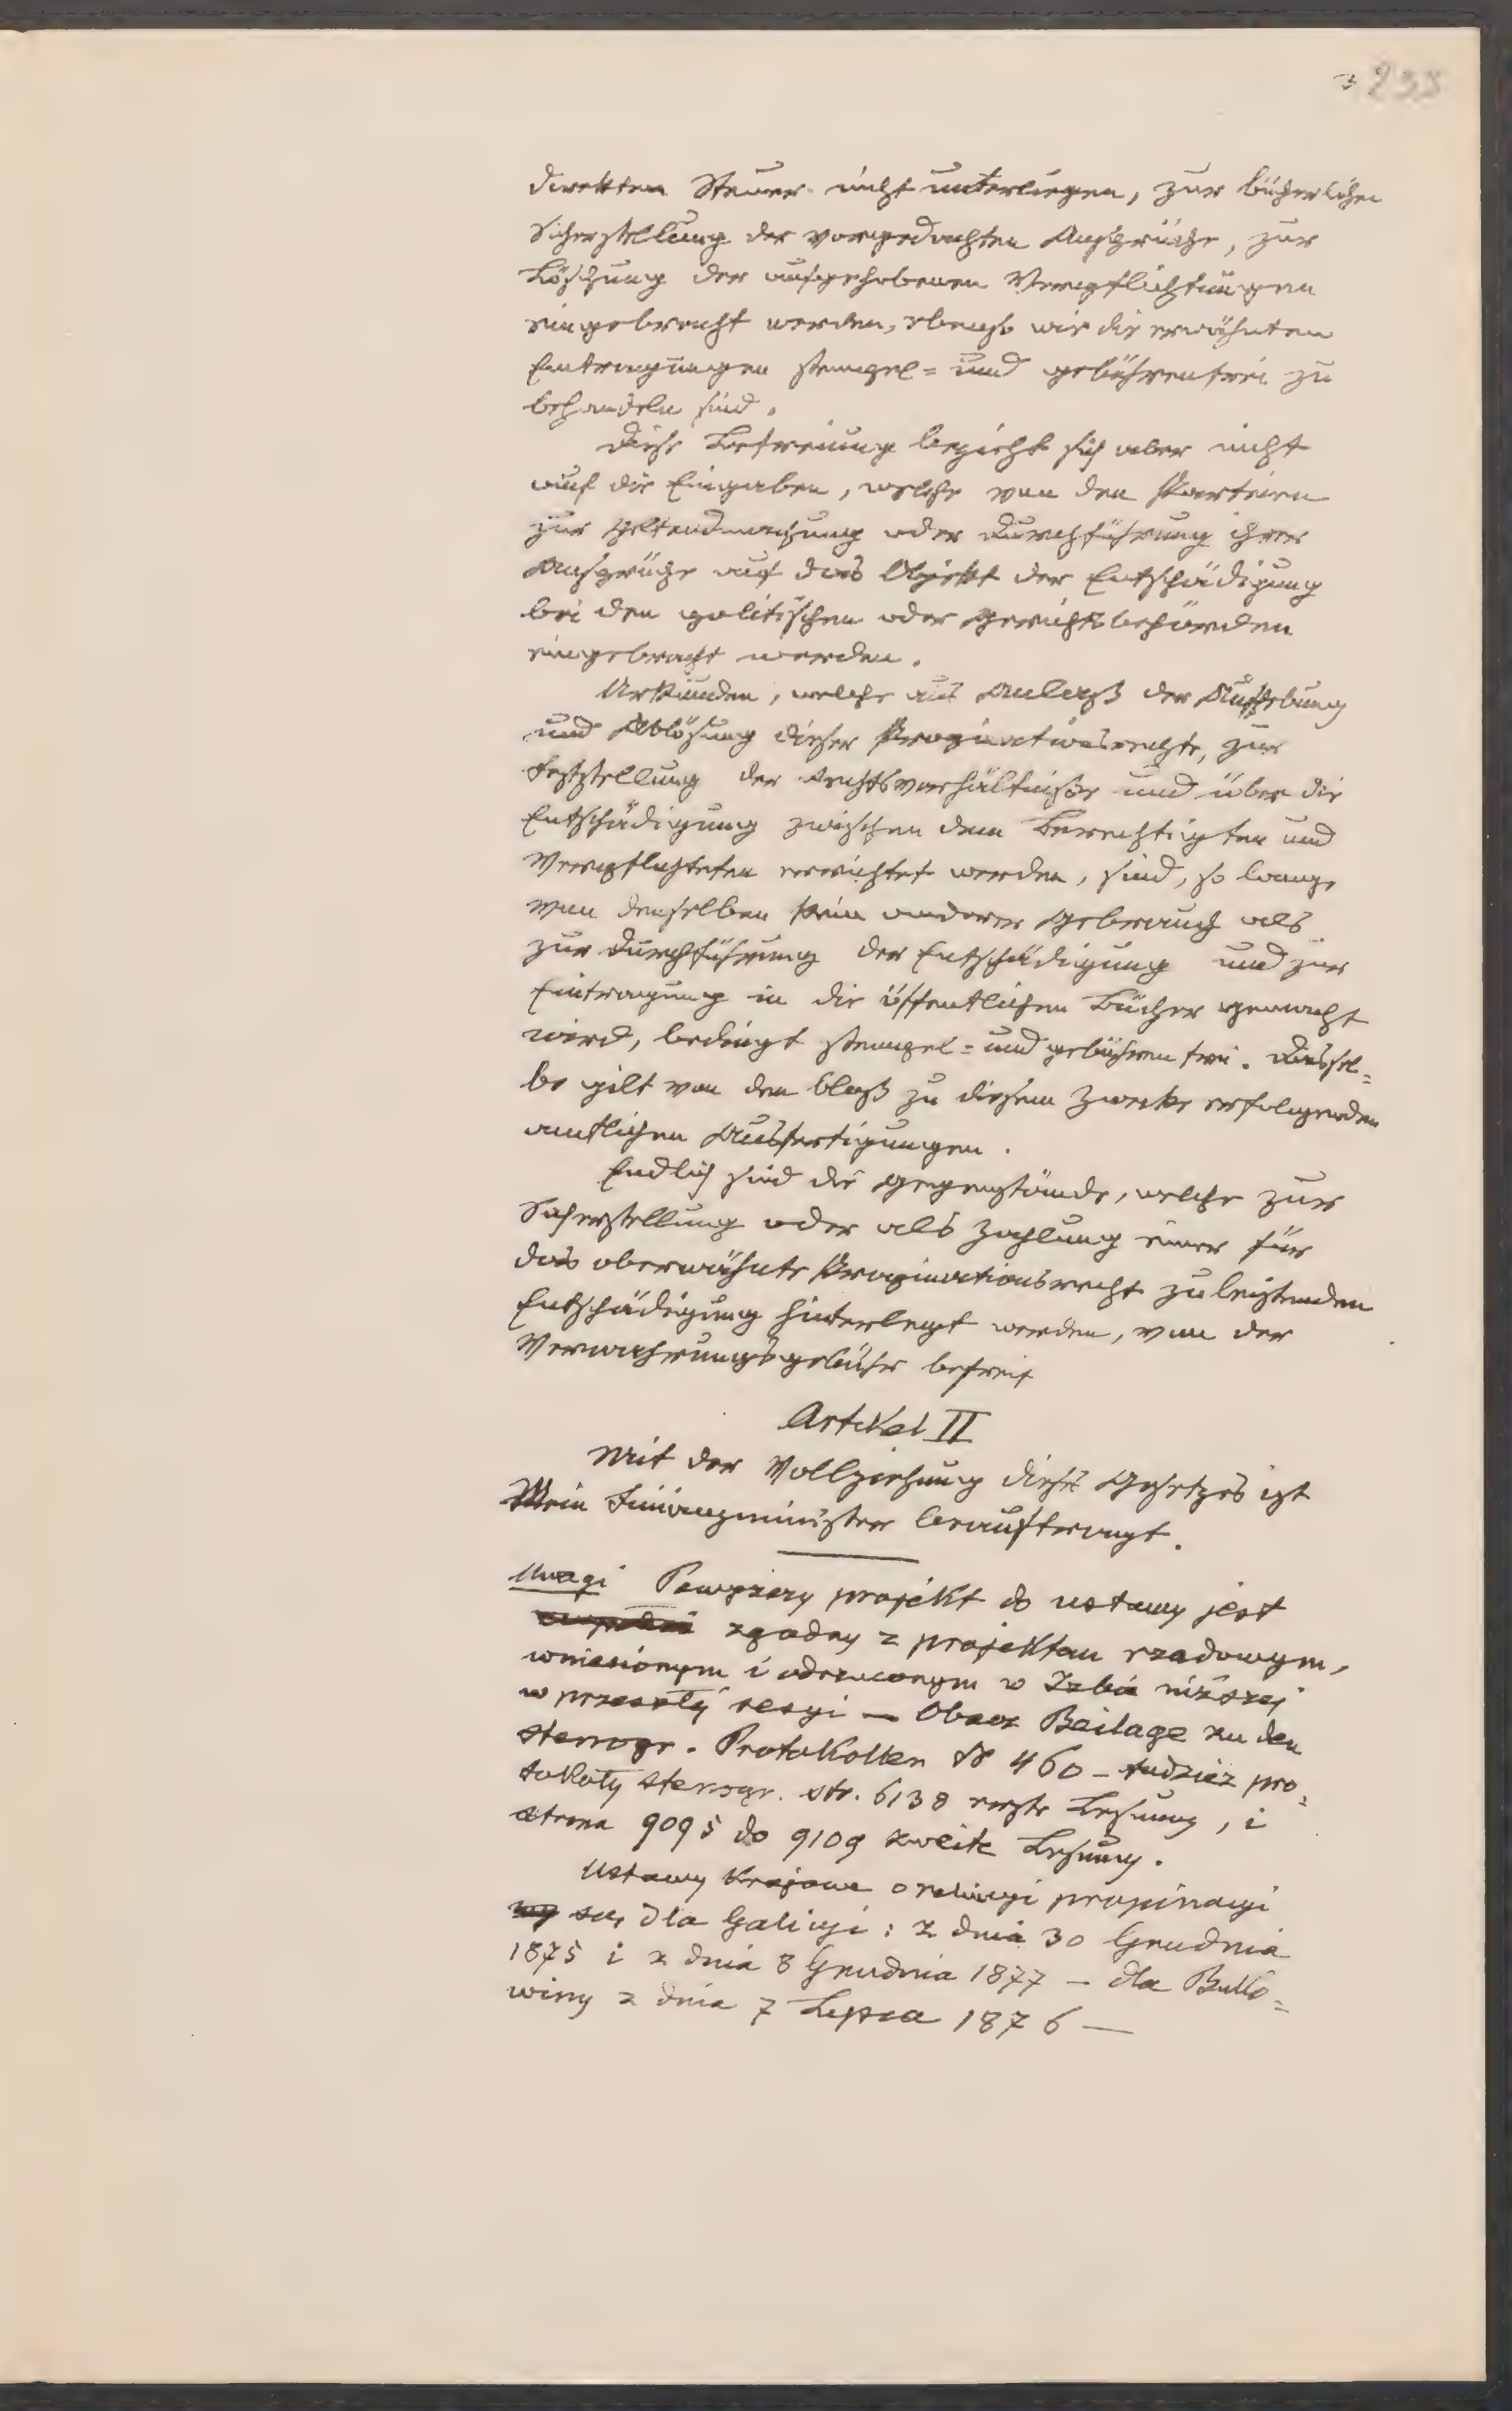 3 233
direkten Steuer nicht unterliegen, zur bücherlichen
Sicherstellung der vorgedachten Ansprüche, zur
Löschung der aufgehobenen Verpflichtungen
eingebracht werden, ebenso wie die erwähnten
Eintragungen stempel= und gebührenfrei zu
behandeln sind.
Diese Befreiung bezieht sich aber nicht
auf die Eingaben, welche von den Parteien
zur Geltendmachung oder Durchführung ihrer
Ansprüche auf das Objekt der Entschädigung
bei den politischen oder Gerichtsbehörden
eingebracht werden.
Urkunden, welche aus Anlaß der Aufhebung
und Ablösung dieser Propinationsrechte, zur
Feststellung der Rechtsverhältniße und über die
Entschädigung zwischen dem Berechtigten und
Verpflichteten errichtet werden, sind, so lange
von denselben kein anderer Gebrauch als
zur Durchführung der Entschädigung und zur
Eintragung in die öffentlichen Bücher gemacht
wird, bedingt stempel= und gebührenfrei. Dassel=
be gilt von den bloß zu diesem Zwecke erfolgenden
amtlichen Ausfertigungen.
Endlich sind die Gegenstände, welche zur
Sicherstellung oder als Zahlung einer für
das oberwähnte Propinationsrecht zu leistenden
Entschädigung hinterlegt werden, von der
Verwahrungsgebühr befreit
Artikel II
Mit der Vollziehung dieses Gesetzes ist
Mein Finanzminister beauftragt.
Uwagi Powyższy projekt do ustawy jest
zgodny z projektem rządowym,
wniesionym i odrzuconym w Izbie niższej
w przeszłej sesyi — Obacz Beilage zu den
stenogr. Protokollen № 460 – tudzież pro=
tokoły stenogr. str. 6138 erste Lesung, i
strona 9095 do 9109 zweite Lesung.
Ustawy krajowe o relucyi propinacyi
są, dla Galicyi: z dnia 30 Grudnia
1875 i z dnia 8 Grudnia 1877 — dla Buko=
winy z dnia 7 Lipca 1876 —